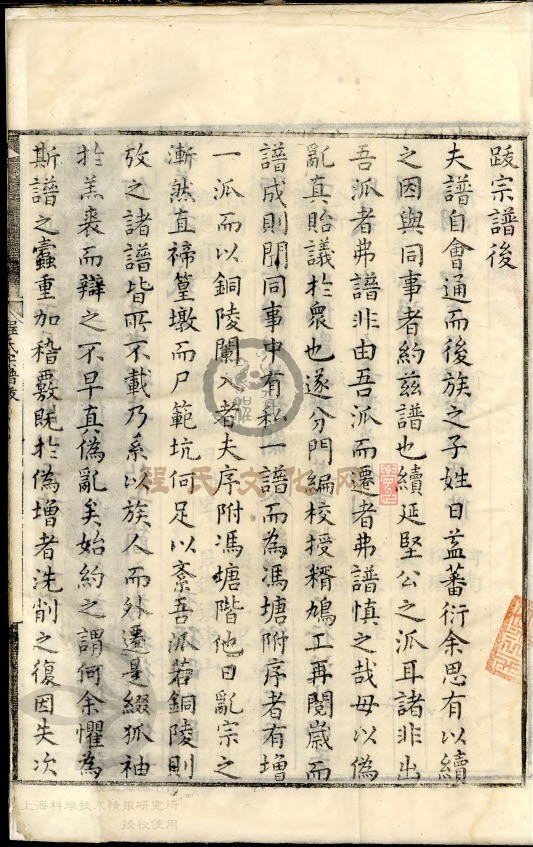 跋宗譜後
夫譜自會通而後族之子姓日益蕃衍余思有以續
之因與同事者約兹譜也續延堅公之派耳諸非出
吾派者弗譜非由吾派而遷者弗譜慎之哉毋以偽
亂真貽議於衆也遂分門編校授糈鳩工再閱嵗而
譜成則聞同事中有私一譜而為馮塘附序者有增
一派而以銅陵闌入者夫序附馮塘階他日亂宗之
漸然直禘篁墩而尸範坑何足以紊吾派若銅陵則
攷之諸譜皆所不載乃系以族人而外遷是綴狐袖
於羔裘而辯之不早真偽亂矣始約之謂何余懼為
斯譜之蠹重加稽覈既於偽增者洗削之復因失次
程氏文化网
上海科學技术情报研究所
授权使用